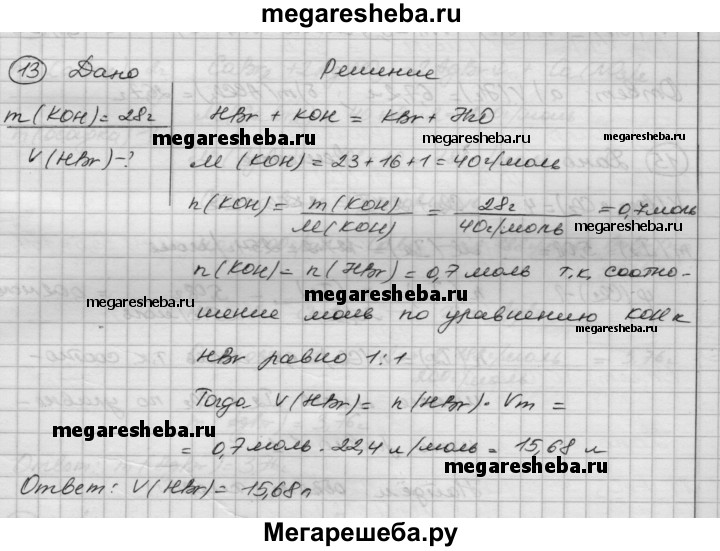 megaresheba.ru
13 Дано Решение
m(KOH)=28г HBr + KOH = KBr + H2O
megaresheba.ru megaresheba.ru
V(HBr)-? M(KOH)=23+16+1=40г/моль
n(KOH)= m(KOH)/M(KOH) = 28г/40г/моль = 0,7моль
megaresheba.ru
n(KOH)= n(HBr)=0,7 моль т.к. соотно-
megaresheba.ru megaresheba.ru
шение моль по уравнению KOH к
megaresheba.ru
HBr равно 1:1
Тогда V(HBr)= n(HBr)·Vm =
megaresheba.ru
= 0,7моль·22,4 л/моль = 15,68 л
megaresheba.ru
Ответ: V(HBr)= 15,68л
Мегарешеба.ру